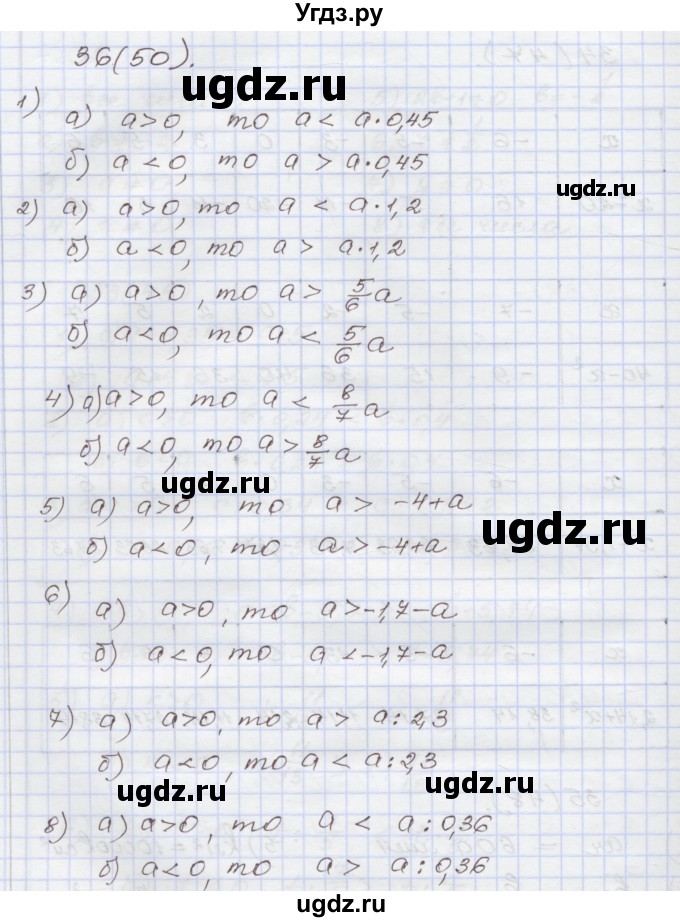 Угдз.ру
36(50).
ugdz.ru
1) а) a>0, то a < a·0,45
б) a<0, то a > a·0,45
ugdz.ru
2) а) a>0, то a < a·1,2
б) a<0, то a > a·1,2
3) а) a>0, то a > 5/6 a
б) a<0, то a < 5/6 a
4) а) a>0, то a < 8/7 a
б) a<0, то a > 8/7 a
ugdz.ru
5) а) a>0, то a > -4+a
ugdz.ru
б) a<0, то a > -4+a
6) а) a>0, то a > -1,7-a
б) a<0, то a < -1,7-a
7) а) a>0, то a > a:2,3
б) a<0, то a < a:2,3
ugdz.ru
ugdz.ru
8) а) a>0, то a < a:0,36
б) a<0, то a > a:0,36
ugdz.ru